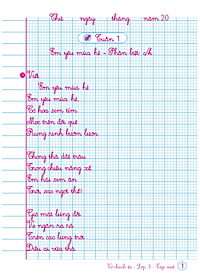 Thứ ngày tháng năm 20
Tuần 1
Em yêu mùa hè - Phân biệt: c/k
Viết
Em yêu mùa hè
Em yêu mùa hè
Có hoa sim tím
Mọc trên đồi quê
Rung rinh bướm lượn
Thong thả dắt trâu
Trong chiều nắng xế
Em hái sim ăn
Trời, sao ngọt thế!
Gió mát lưng đồi
Ve ngân ra rả
Trên cao lưng trời
Diều ai vừa thả
1